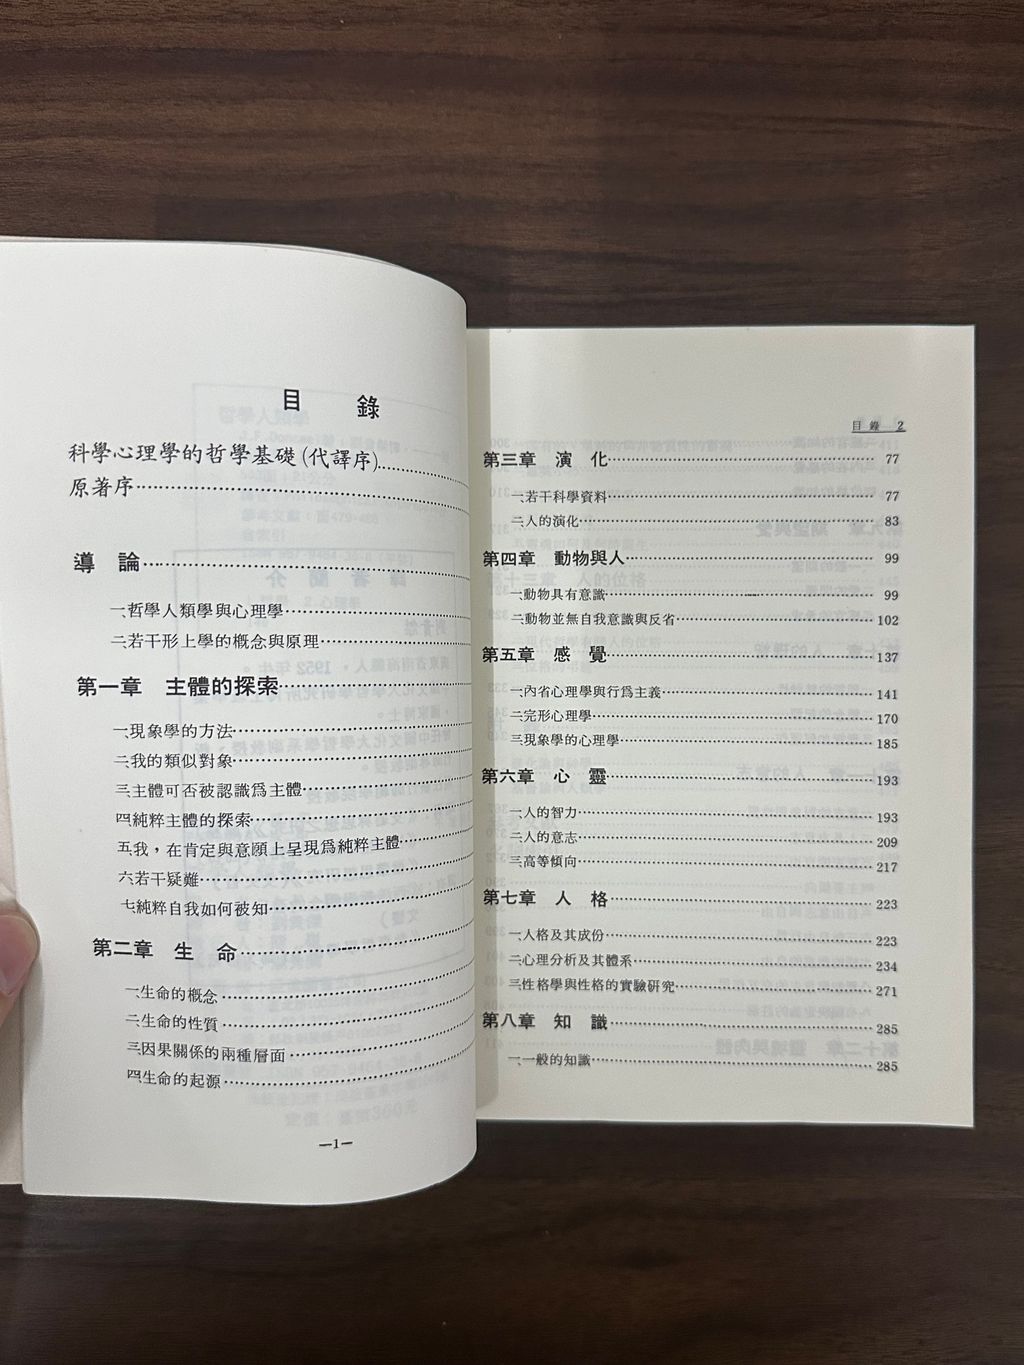 目 錄
科學心理學的哲學基礎(代譯序)
原著序
導 論
一、哲學人類學與心理學
二、若干形上學的概念與原理
第一章 主體的探索
一、現象學的方法
二、我的類似對象
三、主體可否被認識爲主體
四、純粹主體的探索
五、我，在肯定與意願上呈現爲純粹主體
六、若干疑難
七、純粹自我如何被知
第二章 生 命
一、生命的概念
二、生命的性質
三、因果關係的兩種層面
四、生命的起源
—1—
目 錄 2
第三章 演 化 77
一、若干科學資料 77
二、人的演化 83
第四章 動物與人 99
一、動物具有意識 99
二、動物並無自我意識與反省 102
第五章 感 覺 137
一、內省心理學與行爲主義 141
二、完形心理學 170
三、現象學的心理學 185
第六章 心 靈 193
一、人的智力 193
二、人的意志 209
三、高等傾向 217
第七章 人 格 223
一、人格及其成份 223
二、心理分析及其體系 234
三、性格學與性格的實驗研究 271
第八章 知 識 285
一、一般的知識 285